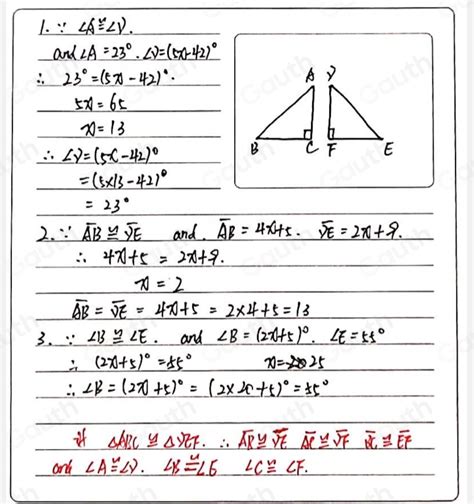 1. ∵ ∠A ≅ ∠D.
and ∠A = 23°. ∠D = (5x-42)°
∴ 23° = (5x-42)°.
5x = 65
x = 13
∴ ∠D = (5x-42)°
= (5×13-42)°
= 23°
A D
B C F E
2. ∵ AB ≅ DE and. AB = 4x+5. DE = 2x+9.
∴ 4x+5 = 2x+9.
x = 2
AB = DE = 4x+5 = 2×4+5 = 13
3. ∵ ∠B ≅ ∠E. and ∠B = (2x+5)°. ∠E = 55°
∴ (2x+5)° = 55° x = 25
∴ ∠B = (2x+5)° = (2×25+5)° = 55°
if △ABC ≅ △DEF. ∴ AB ≅ DE AC ≅ DF BC ≅ EF
and ∠A ≅ ∠D. ∠B ≅ ∠E ∠C ≅ ∠F.
Gauth